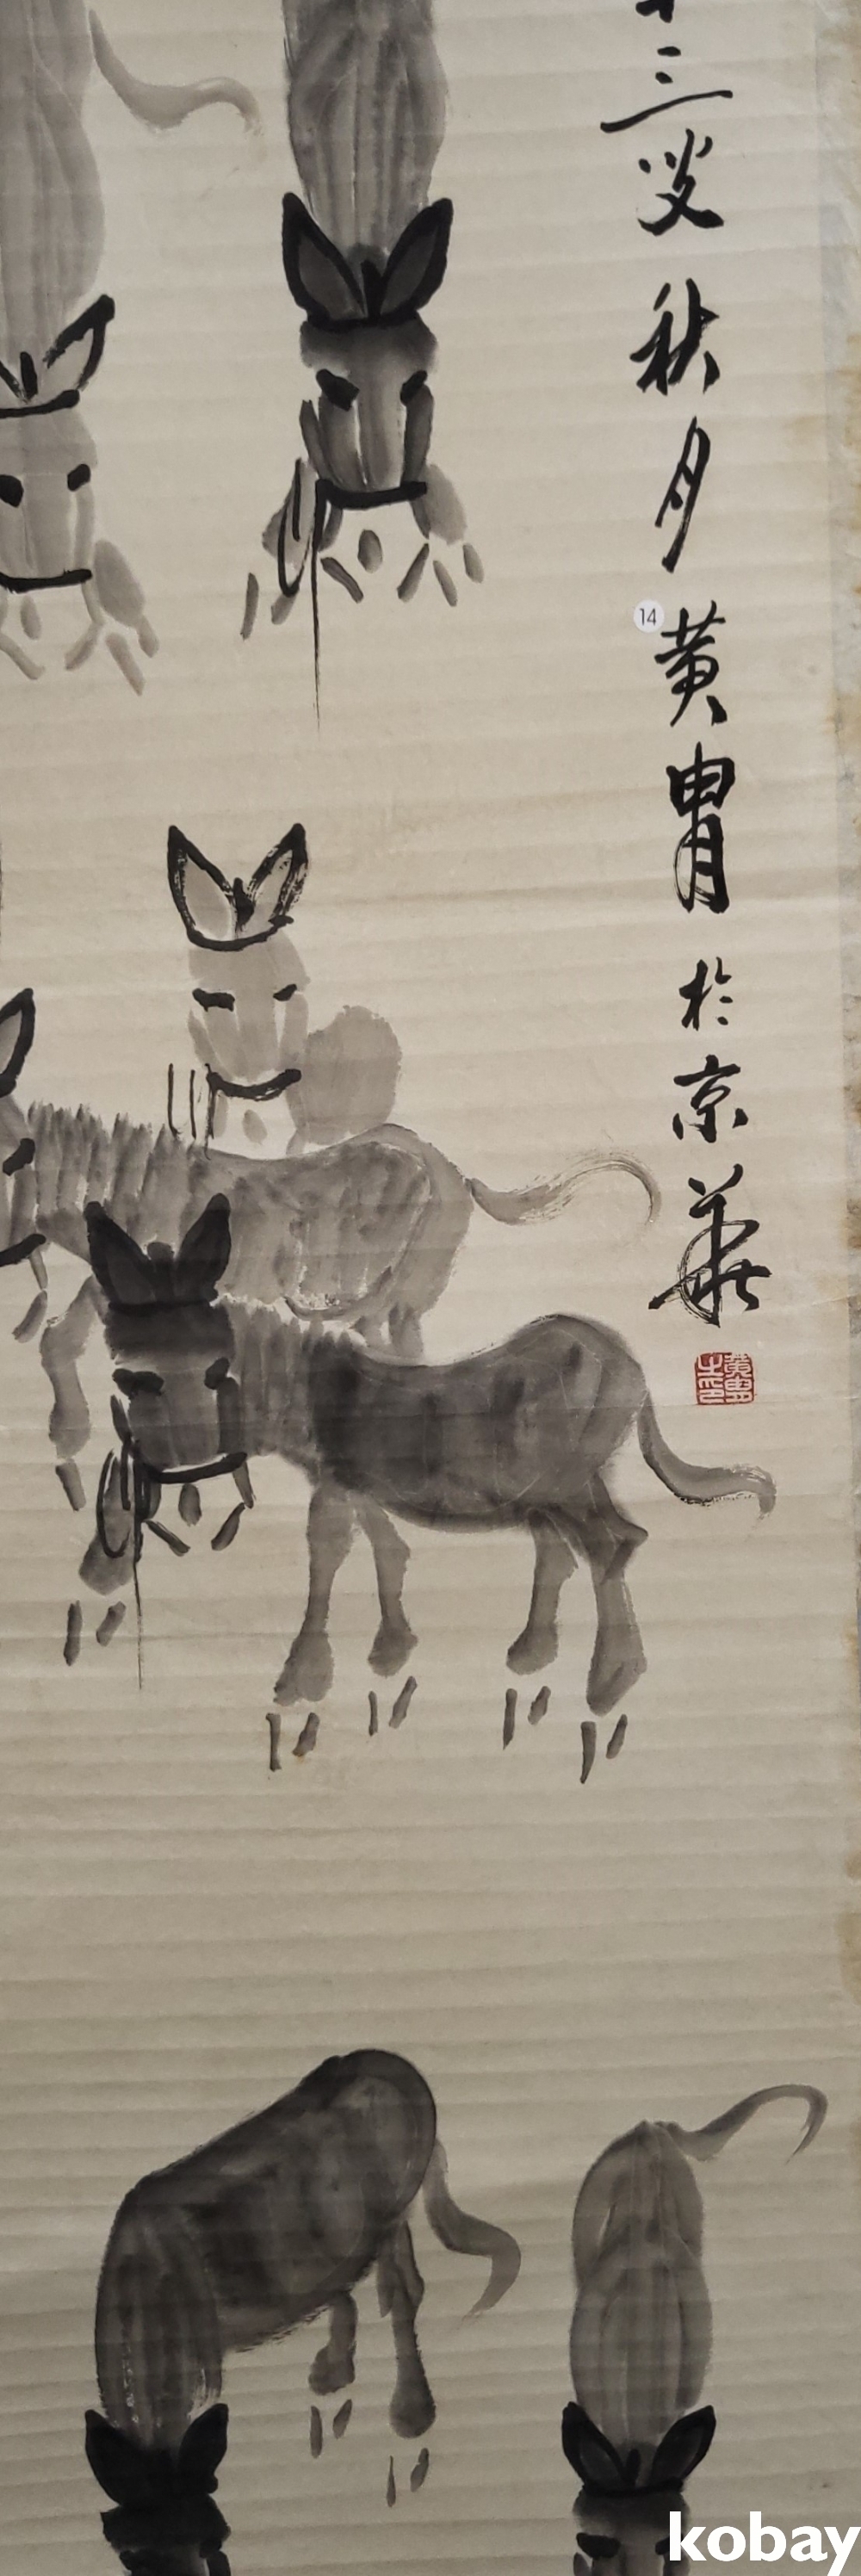 三
秋月黄胄於京華
14
黄胄之印
kobay